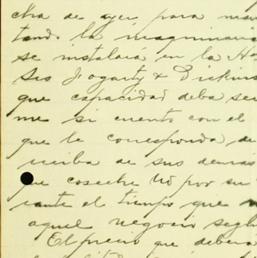 cha de ayer, para man
tando la maquinaria
se instalará en la Ha
Srs Fogarty & Dickins
que capacidad deba ser
me si cuento con el
que le corresponda, de
reciba de sus demas
que coseche Ud por su
rante el tiempo que
aquel negocio según
El precio que debera